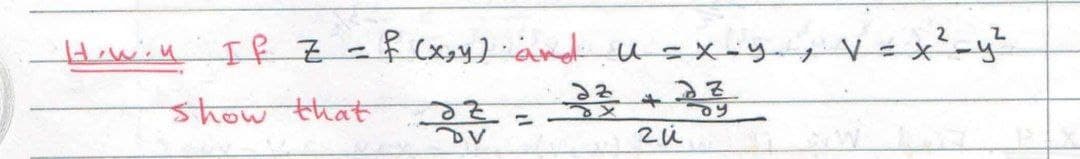 H.w.4 If z = f(x,y) and u = x - y, v = x² - y²
show that ∂z/∂v = (∂z/∂x + ∂z/∂y) / 2u